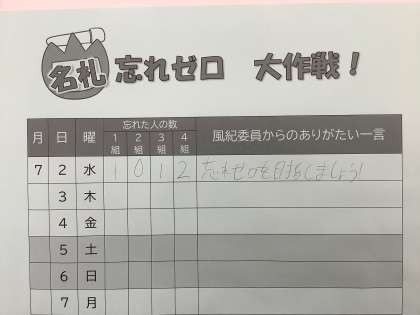 名札 忘れゼロ 大作戦!
月 日 曜 忘れた人の数 風紀委員からのありがたい一言
1組 2組 3組 4組
7 2 水 1 0 1 2 忘れゼロを目指しましょう!
3 木
4 金
5 土
6 日
7 月